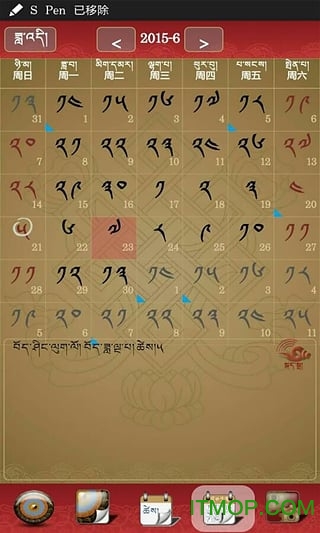 S Pen 已移除
ཟླ་འདི། < 2015-6 >
ཉི་མ། ཟླ་བ། མིག་དམར། ལྷག་པ། ཕུར་བུ། པ་སངས། སྤེན་པ།
周日 周一 周二 周三 周四 周五 周六
༡༣ ༡༤ ༡༥ ༡༦ ༡༧ ༡༨ ༡༩
31 1 2 3 4 5 6
༢༠ ༢༡ ༢༢ ༢༣ ༢༤ ༢༦ ༢༧
7 8 9 10 11 12 13
༢༨ ༢༩ ༣༠ ༡ ༢ ༣ ༤
14 15 16 17 18 19 20
༥ ༦ ༧ ༨ ༩ ༡༠ ༡༡
21 22 23 24 25 26 27
༡༡ ༡༢ ༡༣ ༡༤ ༡༥ ༡༦ ༡༨
28 29 30 1 2 3 4
༡༩ ༢༠ ༢༡ ༢༢ ༢༣ ༢༤ ༢༥
5 6 7 8 9 10 11
བོད་ཤིང་ལུག་ལོ། བོད་ཟླ་ལྔ་པ་ཚེས།༥
ཚེས།
ITMOP.com